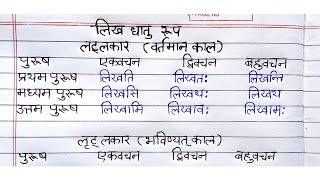 लिख धातु रूप
लट्लकार (वर्तमान काल)
पुरुष एकवचन द्विवचन बहुवचन
प्रथम पुरुष लिखति लिखतः लिखन्ति
मध्यम पुरुष लिखसि लिखथः लिखथ
उत्तम पुरुष लिखामि लिखावः लिखामः
लृट्लकार (भविष्यत् काल)
पुरुष एकवचन द्विवचन बहुवचन